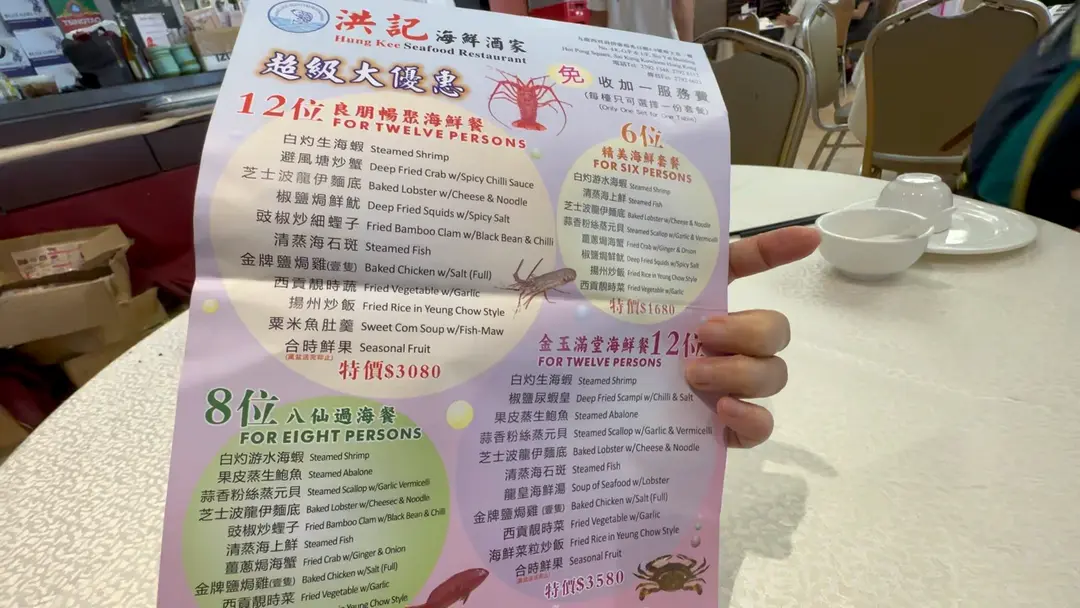 洪記 海鮮酒家
Hung Kee Seafood Restaurant
超級大優惠
免 收加一服務費
(每檯只可選擇一份套餐)
(Only One Set for One Table)
12位 良朋暢聚海鮮餐
FOR TWELVE PERSONS
白灼生海蝦 Steamed Shrimp
避風塘炒蟹 Deep Fried Crab w/Spicy Chilli Sauce
芝士波龍伊麵底 Baked Lobster w/Cheese & Noodle
椒鹽焗鮮魷 Deep Fried Squids w/Spicy Salt
豉椒炒細蟶子 Fried Bamboo Clam w/Black Bean & Chilli
清蒸海石斑 Steamed Fish
金牌鹽焗雞(壹隻) Baked Chicken w/Salt (Full)
西貢靚時蔬 Fried Vegetable w/Garlic
揚州炒飯 Fried Rice in Yeung Chow Style
粟米魚肚羹 Sweet Corn Soup w/Fish-Maw
合時鮮果 Seasonal Fruit
特價$3080
6位
精美海鮮套餐
FOR SIX PERSONS
白灼游水海蝦 Steamed Shrimp
清蒸海上鮮 Steamed Fish
芝士波龍伊麵底 Baked Lobster w/Cheese & Noodle
蒜香粉絲蒸元貝 Steamed Scallop w/Garlic & Vermicelli
薑蔥焗海蟹 Fried Crab w/Ginger & Onion
椒鹽焗鮮魷 Deep Fried Squids w/Spicy Salt
揚州炒飯 Fried Rice in Yeung Chow Style
西貢靚時菜 Fried Vegetable w/Garlic
特價$1680
8位 八仙過海餐
FOR EIGHT PERSONS
白灼游水海蝦 Steamed Shrimp
果皮蒸生鮑魚 Steamed Abalone
蒜香粉絲蒸元貝 Steamed Scallop w/Garlic Vermicelli
芝士波龍伊麵底 Baked Lobster w/Cheesec & Noodle
豉椒炒蟶子 Fried Bamboo Clam w/Black Bean & Chilli
清蒸海上鮮 Steamed Fish
薑蔥焗海蟹 Fried Crab w/Ginger & Onion
金牌鹽焗雞(壹隻) Baked Chicken w/Salt (Full)
西貢靚時菜 Fried Vegetable w/Garlic
Fried Rice in Yeung Chow Style
金玉滿堂海鮮餐 12位
FOR TWELVE PERSONS
白灼生海蝦 Steamed Shrimp
椒鹽尿蝦皇 Deep Fried Scampi w/Chilli & Salt
果皮蒸生鮑魚 Steamed Abalone
蒜香粉絲蒸元貝 Steamed Scallop w/Garlic & Vermicelli
芝士波龍伊麵底 Baked Lobster w/Cheese & Noodle
清蒸海石斑 Steamed Fish
龍皇海鮮湯 Soup of Seafood w/Lobster
金牌鹽焗雞(壹隻) Baked Chicken w/Salt (Full)
西貢靚時菜 Fried Vegetable w/Garlic
海鮮菜粒炒飯 Fried Rice in Yeung Chow Style
合時鮮果 Seasonal Fruit
特價$3580